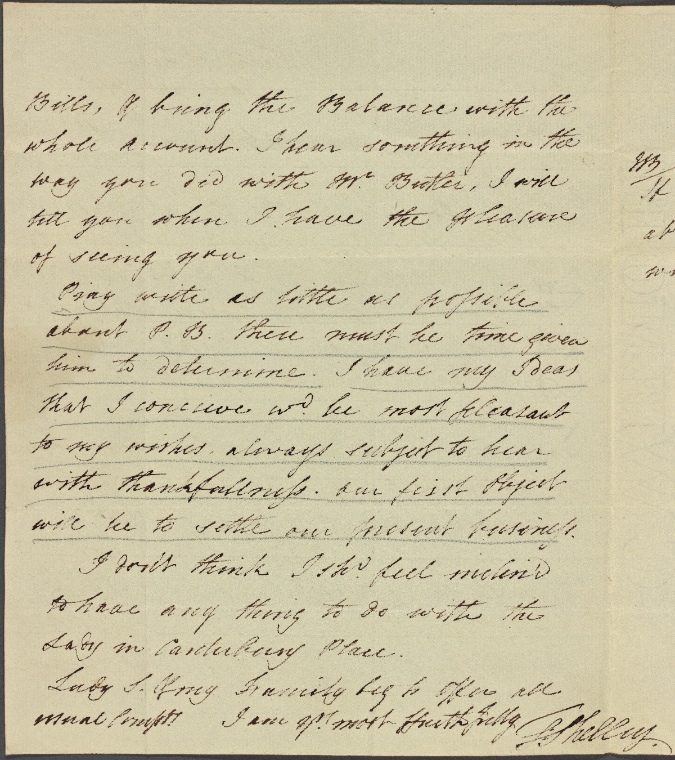 Bills, & bring the Balance with the
whole account. I hear something in the
way you did with Mr. Butler, I will
tell you when I have the pleasure
of seeing you.
Pray write as little as possible
about P. B. there must be time given
him to determine. I have my Ideas
that I conceive wd. be most pleasant
to my wishes. always subject to hear
with thankfullness. our first Object
will be to settle our present business.
I don't think I shd. feel inclin'd
to have any thing to do with the
Lady in Canterbury Place.
Lady S. & my Family beg to offer all
usual Compts I am yrs. most faithfully
Shelley.
If
ab